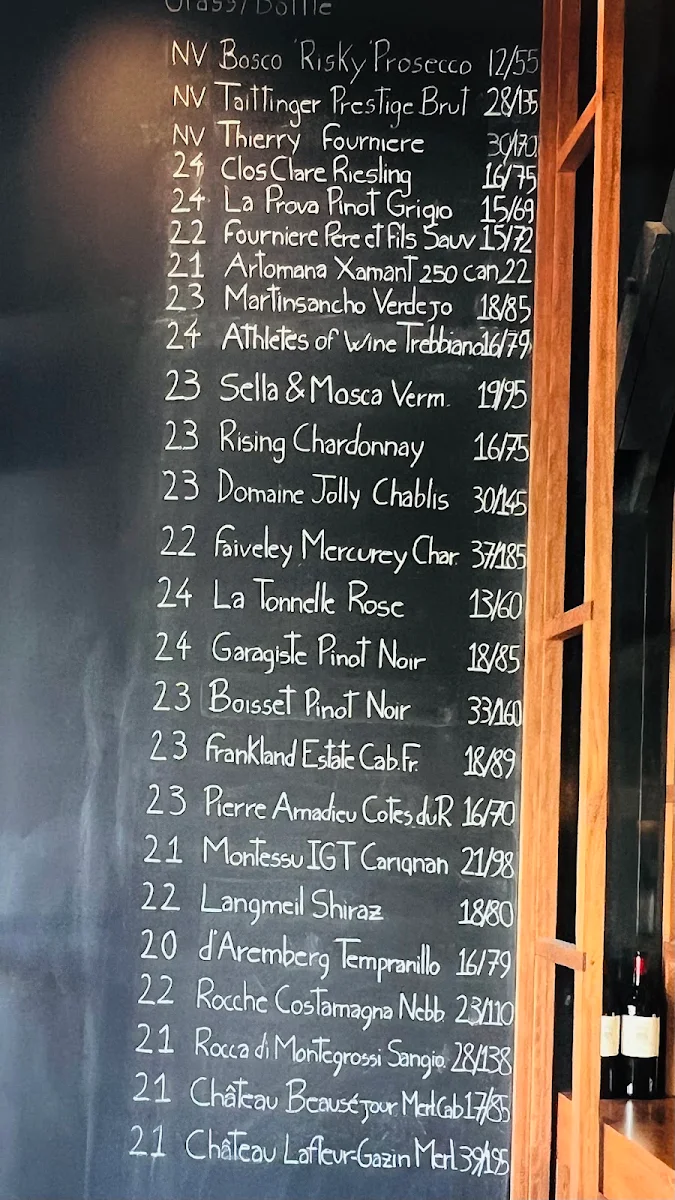 Grass/Bottle
NV Bosco 'Risky' Prosecco 12/55
NV Taittinger Prestige Brut 28/135
NV Thierry Fourniere 30/170
24 Clos Clare Riesling 16/75
24 La Prova Pinot Grigio 15/69
22 Fourniere Pere et Fils Sauv 15/72
21 Artomana Xamant 250 can 22
23 Martinsancho Verdejo 18/85
24 Athletes of Wine Trebbiano 16/79
23 Sella & Mosca Verm. 19/95
23 Rising Chardonnay 16/75
23 Domaine Jolly Chablis 30/145
22 Faiveley Mercurey Char. 37/185
24 La Tonnelle Rose 13/60
24 Garagiste Pinot Noir 18/85
23 Boisset Pinot Noir 33/160
23 Frankland Estate Cab.Fr. 18/89
23 Pierre Amadieu Cotes du R 16/70
21 Montessu IGT Carignan 21/98
22 Langmeil Shiraz 18/80
20 d'Aremberg Tempranillo 16/79
22 Rocche Costamagna Nebb 23/110
21 Rocca di Montegrossi Sangio. 28/138
21 Château Beauséjour Merl.Cab 17/85
21 Château Lafleur-Gazin Merl. 39/195